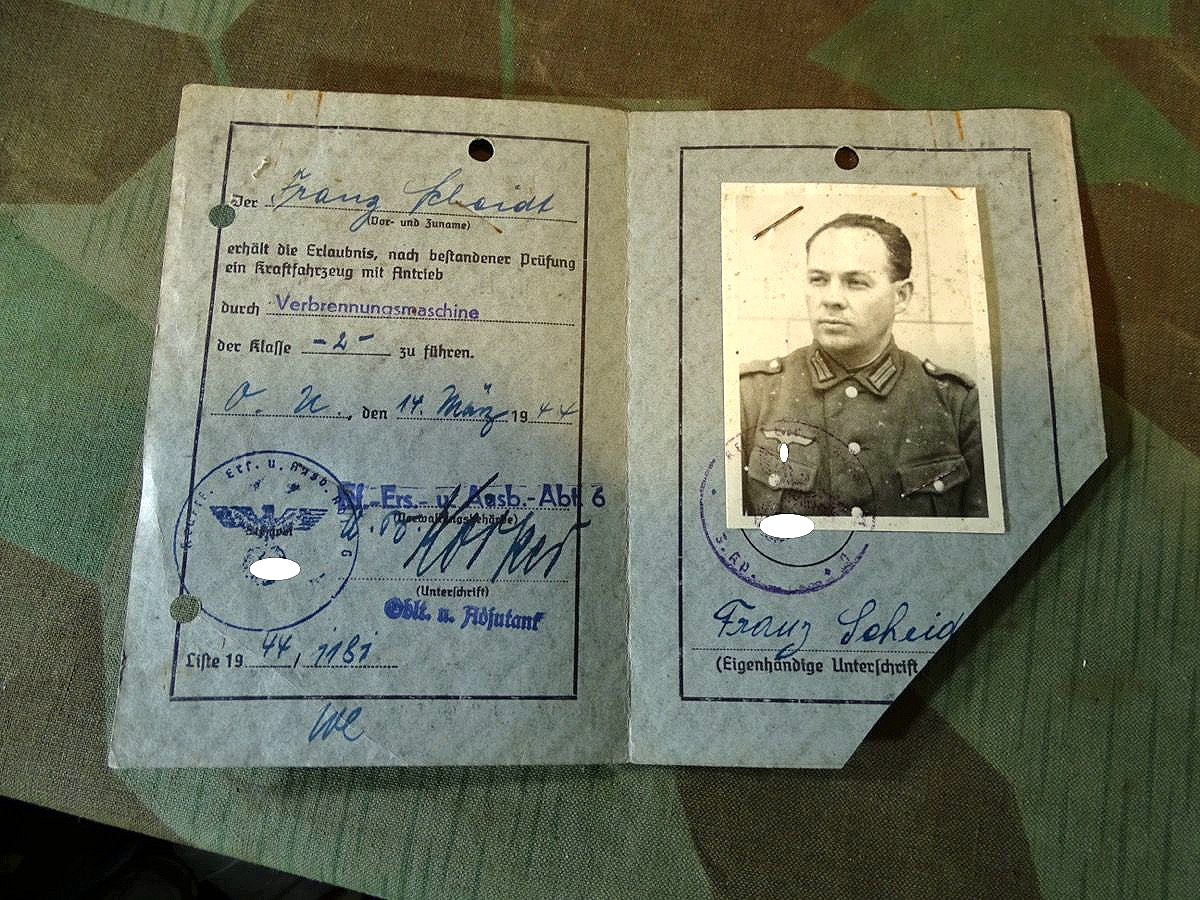 Der Franz Scheidt
(Vor- und Zuname)
erhält die Erlaubnis, nach bestandener Prüfung
ein Kraftfahrzeug mit Antrieb
durch Verbrennungsmaschine
der Klasse -2- zu führen.
O. U., den 14. März 1944
Kf.-Ers.- u. Ausb.-Abt. 6
(Verwaltungsbehörde)
(Unterschrift)
Oblt. u. Adjutant
Ers. u. Ausb.
Liste 19 44 / 1181
We
Franz Scheid
(Eigenhändige Unterschrift